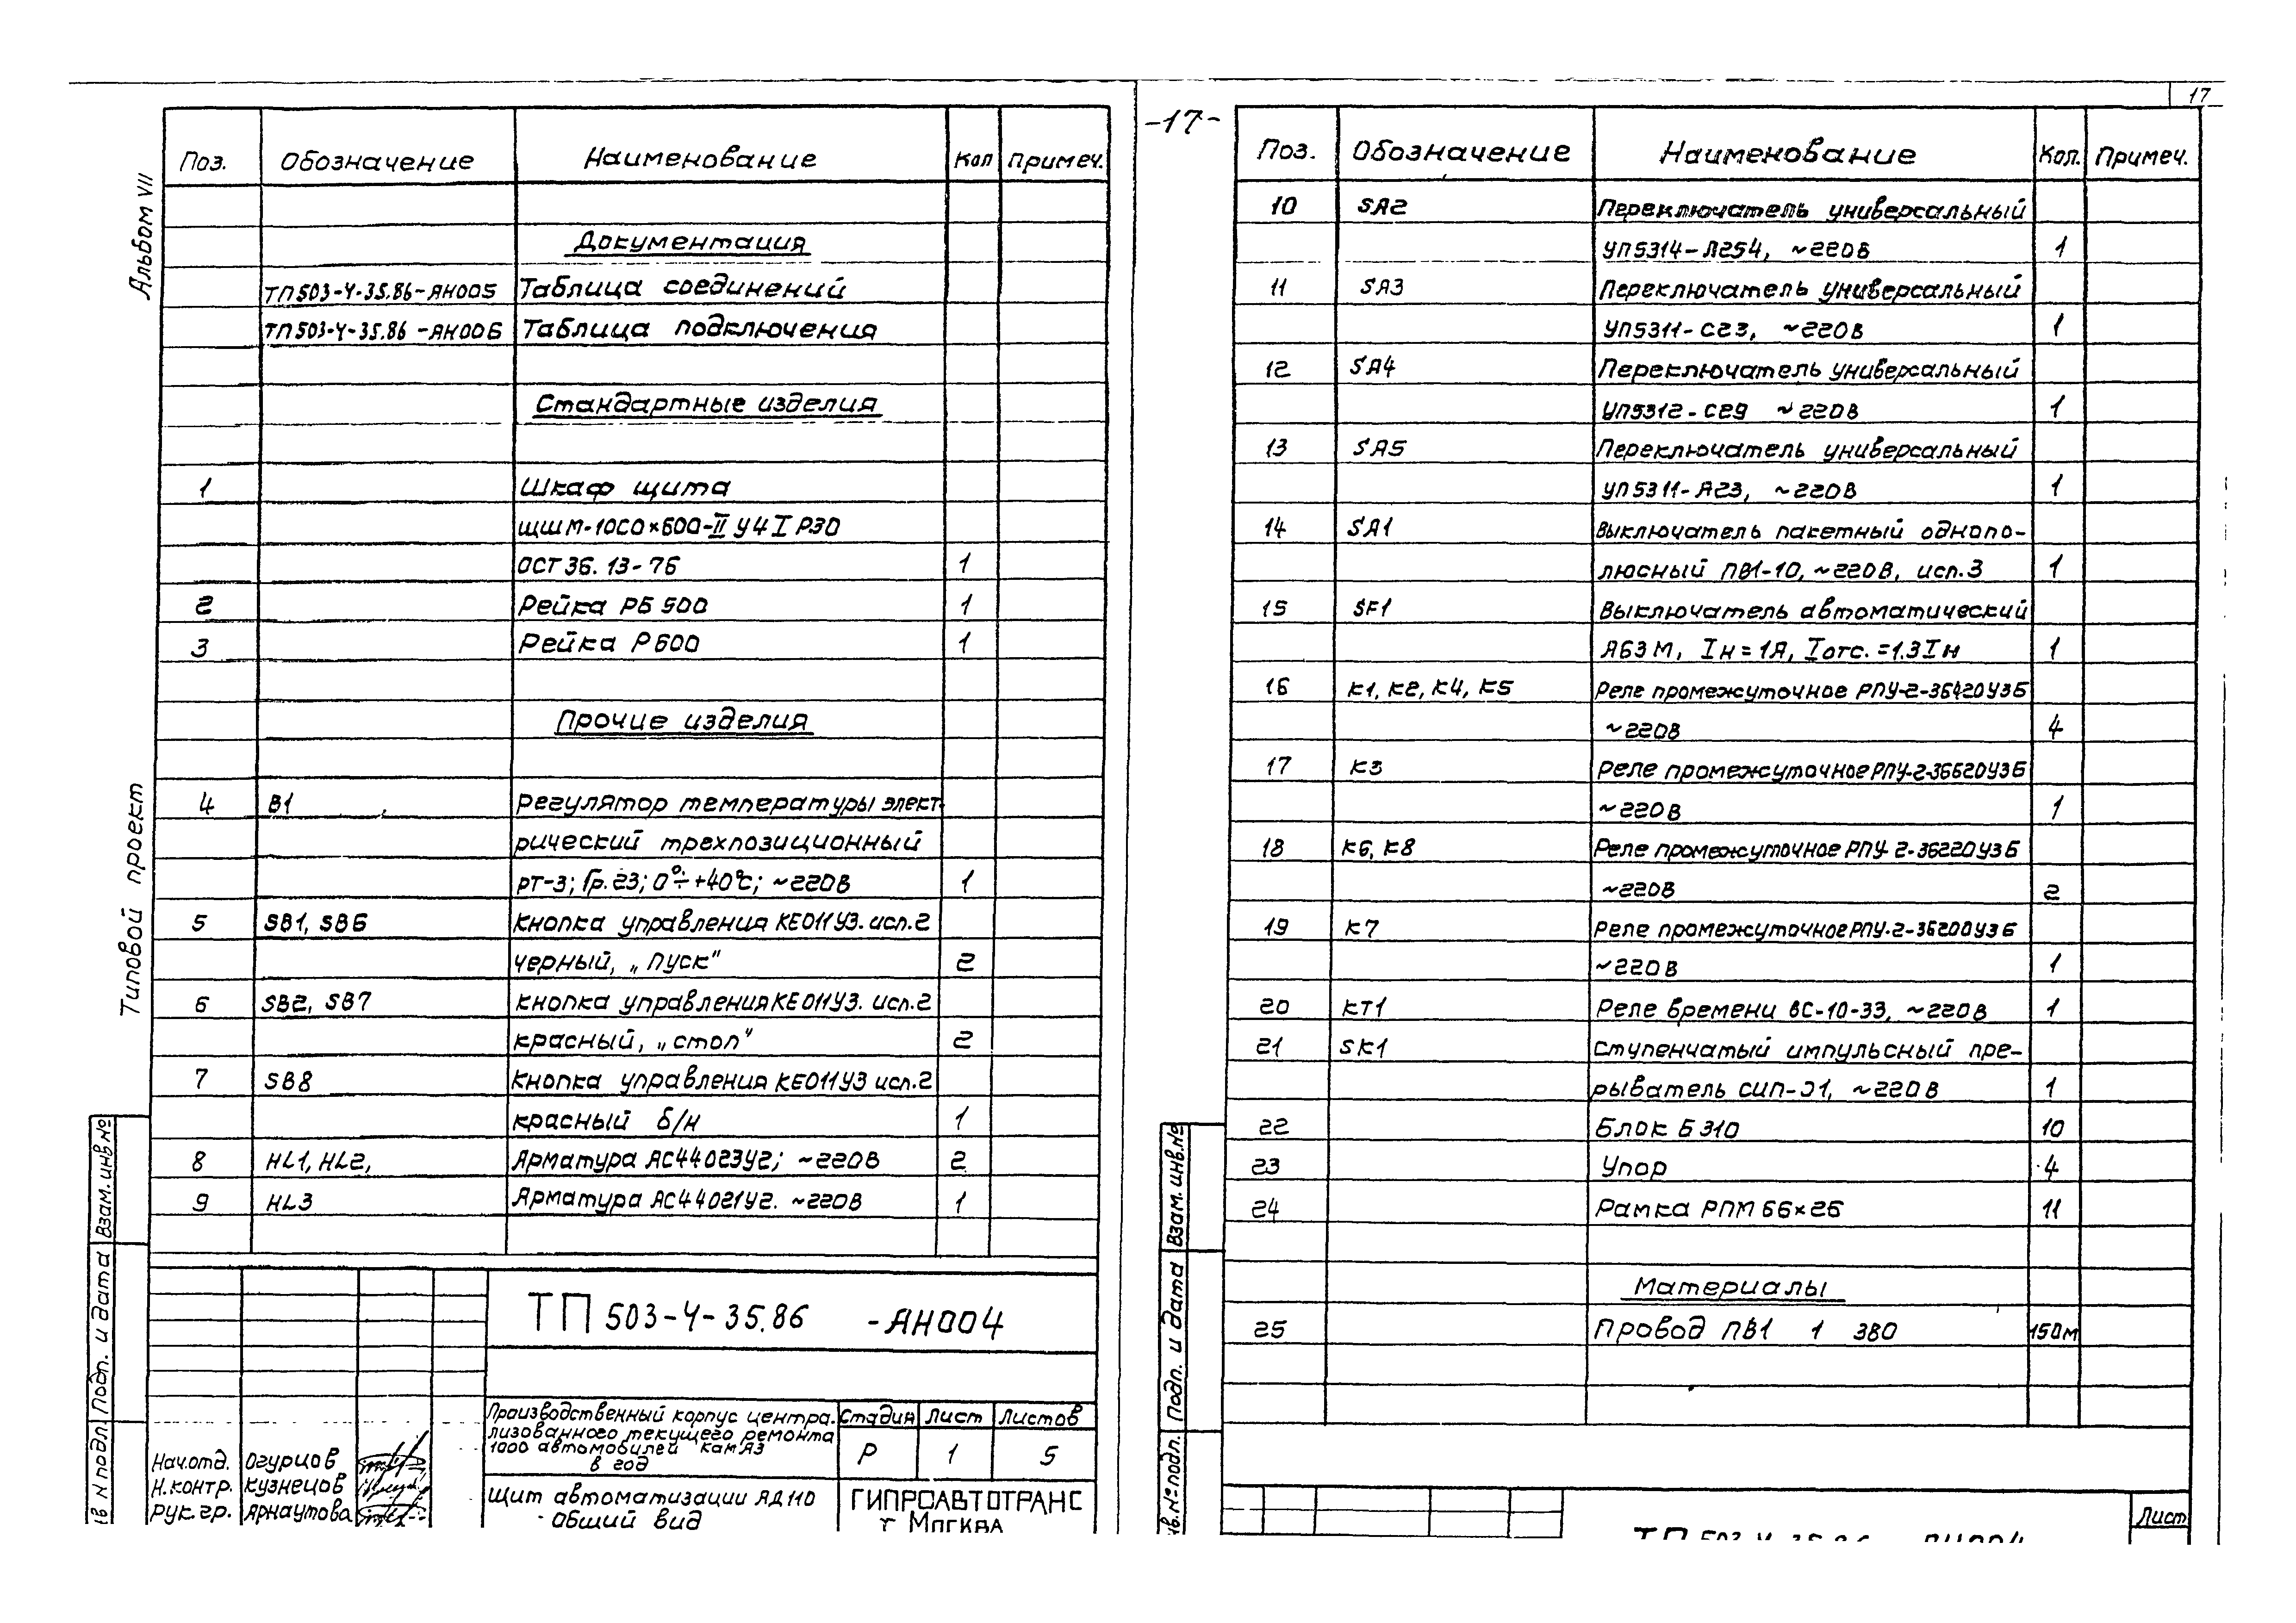 17
-17-
Альбом VII
Типовой проект
Взам. инв.№
Подп. и дата
Поз. Обозначение Наименование Кол Примеч.
Документация
ТП503-4-35.86-АН005 Таблица соединений
ТП503-4-35.86-АН006 Таблица подключения
Стандартные изделия
1 Шкаф щита
ЩШМ-1000×600-II У4 I Р30
ОСТ 36.13-76 1
2 Рейка РБ 500 1
3 Рейка Р600 1
Прочие изделия
4 В1 Регулятор температуры элект-
рический трехпозиционный
РТ-3; Гр.23; 0°÷+40°С; ~220В 1
5 SB1, SB6 Кнопка управления КЕ011У3. исп.2
черный, „Пуск" 2
6 SB2, SB7 Кнопка управления КЕ011У3. исп.2
красный, „стоп" 2
7 SB8 Кнопка управления КЕ011У3 исп.2
красный б/н 1
8 HL1, HL2, Арматура АС44023У2; ~220В 2
9 HL3 Арматура АС44021У2. ~220В 1
ТП 503-4-35.86 -АН004
Производственный корпус центра-
лизованного текущего ремонта
1000 автомобилей КамАЗ
в год
Стадия Лист Листов
Р 1 5
Нач.отд. Огурцов
Н.контр. Кузнецов
Рук.гр. Арнаутова
Щит автоматизации ЯД110
Общий вид
ГИПРОАВТОТРАНС
г Москва
Поз. Обозначение Наименование Кол. Примеч.
10 SA2 Переключатель универсальный
УП5314-Л254, ~220В 1
11 SA3 Переключатель универсальный
УП5311-С23, ~220В 1
12 SA4 Переключатель универсальный
УП5312-С29 ~220В 1
13 SA5 Переключатель универсальный
УП5311-А23, ~220В 1
14 SA1 Выключатель пакетный однопо-
люсный ПВ1-10, ~220В, исп.3 1
15 SF1 Выключатель автоматический
А63М, Iн=1А, Iотс.=1.3Iн 1
16 К1, К2, К4, К5 Реле промежуточное РПУ-2-36420У3Б
~220В 4
17 К3 Реле промежуточное РПУ-2-36620У3Б
~220В 1
18 К6, К8 Реле промежуточное РПУ-2-36220У3Б
~220В 2
19 К7 Реле промежуточное РПУ-2-36200У3Б
~220В 1
20 КТ1 Реле времени ВС-10-33, ~220В 1
21 SK1 Ступенчатый импульсный пре-
рыватель СИП-01, ~220В 1
22 Блок Б310 10
23 Упор 4
24 Рамка РПМ 66×26 11
Материалы
25 Провод ПВ1 1 380 150м
Взам. инв.№
Подп. и дата
Лист
ТП 503-4-35.86 -АН004